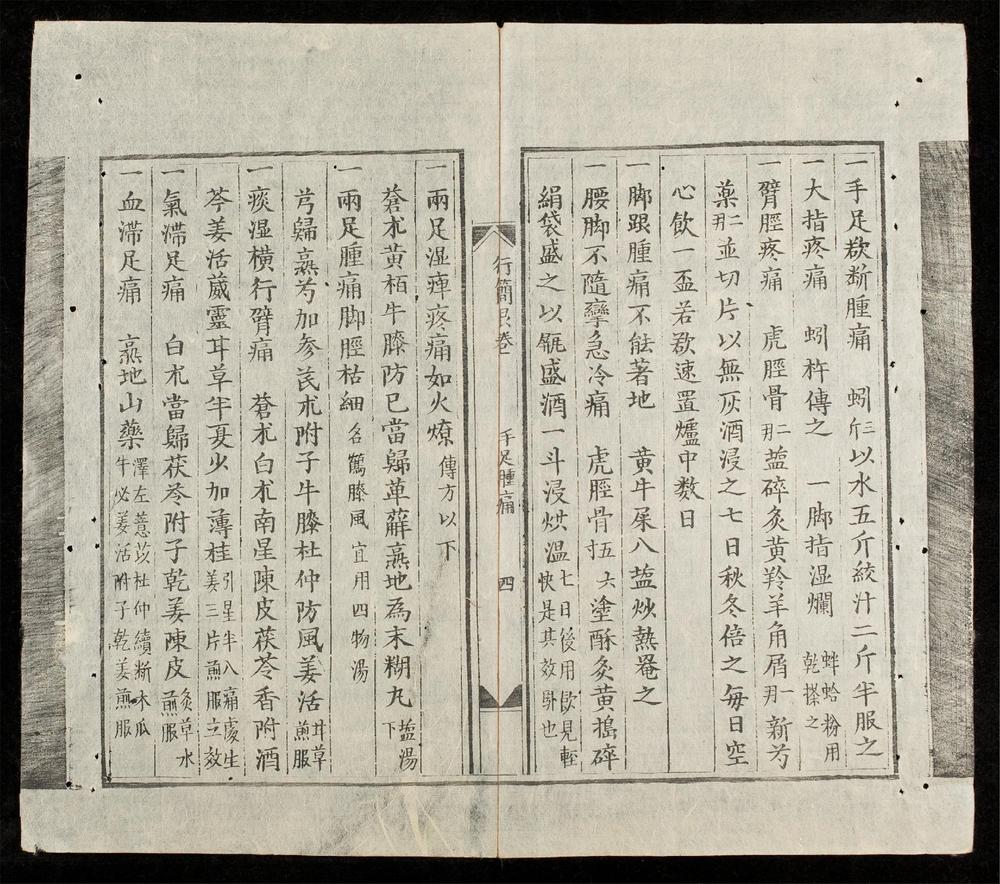 一手足欲断腫痛 蚓三斤以水五斤絞汁二斤半服之
一大指疼痛 蚓杵傅之 一脚指湿爛 蚌蛤粉用乾搽之
一臂脛疼痛 虎脛骨二那盐碎灸黄羚羊角屑一那新芍
薬二那並切片以無灰酒浸之七日秋冬倍之毎日空
心飲一盃若欲速置爐中数日
一脚跟腫痛不能著地 黄牛屎入盐炒熱罨之
一腰脚不隨攣急冷痛 虎脛骨五六寸塗酥灸黄搗碎
絹袋盛之以瓶盛酒一斗浸烘温七日後用飲見輕快是其效驗也
行簡珎卷
手足腫痛
四
一兩足湿痺疼痛如火燎 傳方以下
蒼朮黄栢牛膝防己當歸萆薢熹地為末糊丸盐湯下
一兩足腫痛脚脛枯細 名鶴膝風 宜用四物湯
芎歸熹芍加参芪朮附子牛膝杜仲防風姜活甘草煎服
一痰湿横行臂痛 蒼朮白朮南星陳皮茯苓香附酒
芩姜活葳靈甘草半夏少加薄桂引星半入痛處生姜三片煎服立效
一氣滯足痛 白朮當歸茯苓附子乾姜陳皮灸草水煎服
一血滯足痛 熹地山藥澤左薏苡杜仲續断木瓜牛必姜活附子乾姜煎服